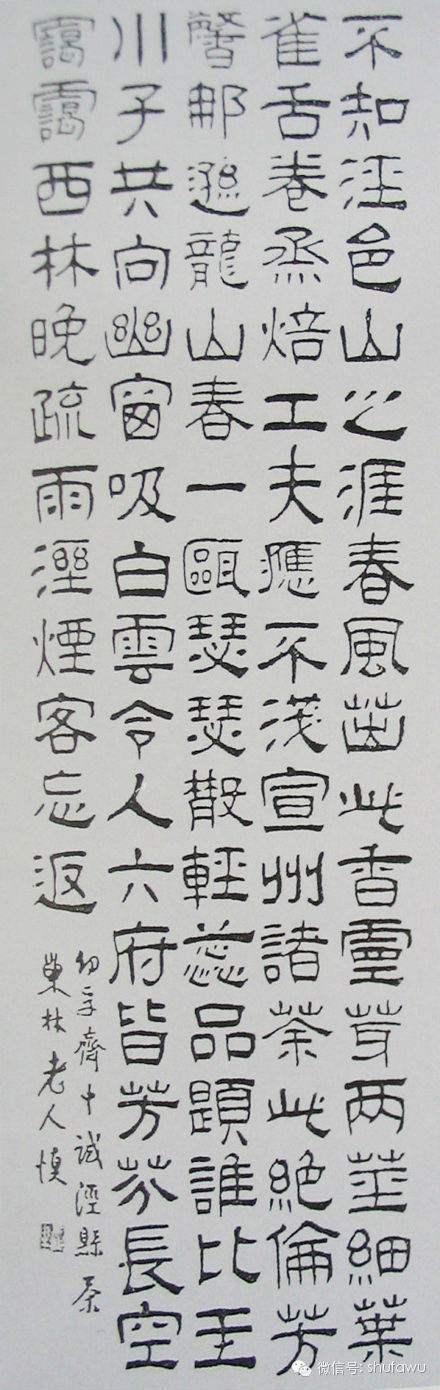 不知涇邑山之涯春風茁此香靈芽兩莖細葉
雀舌卷烝焙工夫應不淺宣州諸茶此絕倫芳
馨那遜龍山春一甌瑟瑟散輕蕊品題誰比玉
川子共向幽窗吸白雲令人六府皆芳芬長空
靄靄西林晚疏雨溼煙客忘返
幼孚齋中試涇縣茶
巢林老人慎
微信号: shufawu